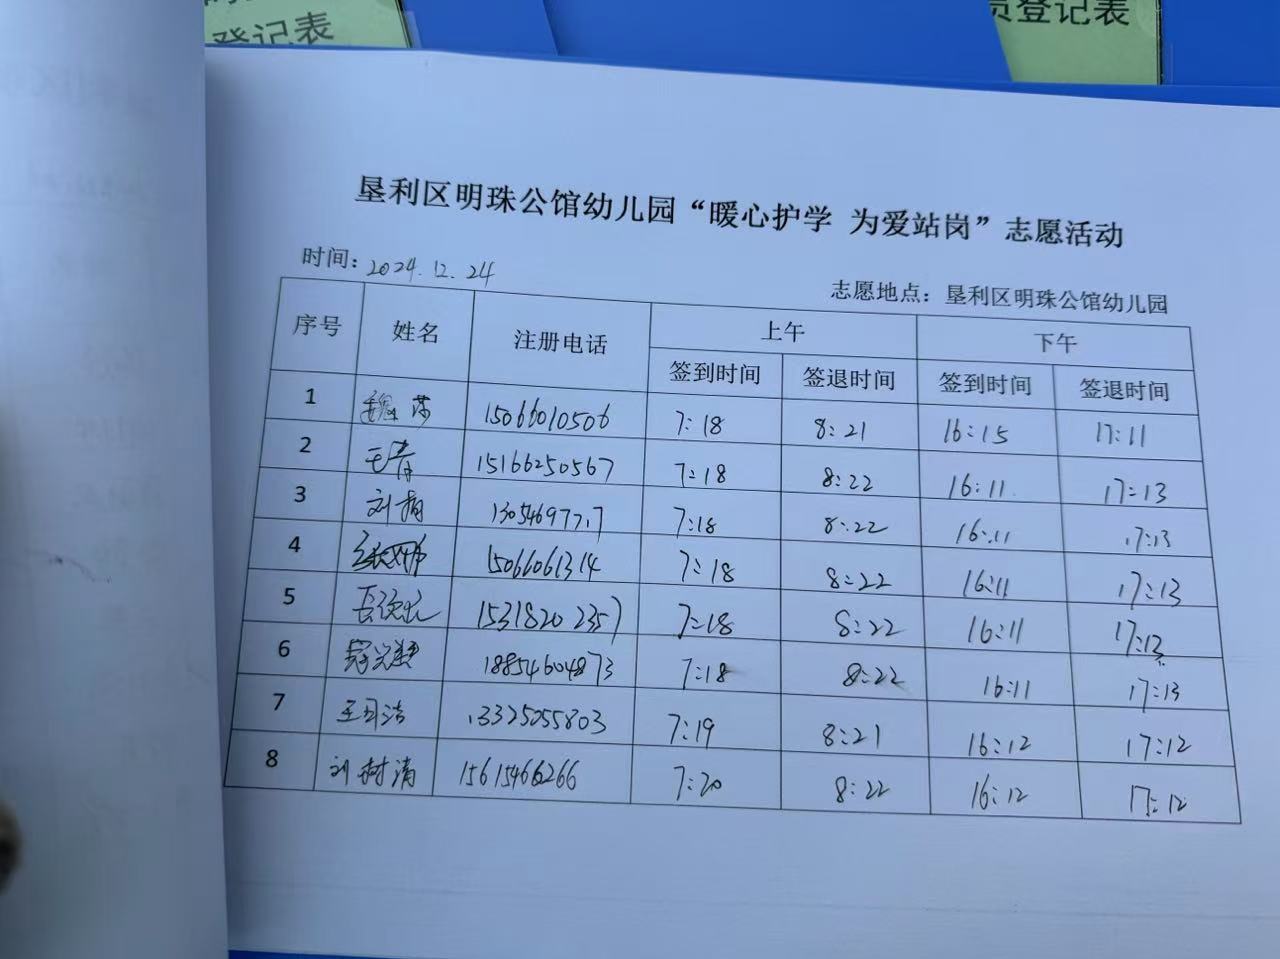 登记表
员登记表
垦利区明珠公馆幼儿园“暖心护学 为爱站岗”志愿活动
时间：2024.12.24
志愿地点：垦利区明珠公馆幼儿园
序号 姓名 注册电话 上午 下午
签到时间 签退时间 签到时间 签退时间
1 魏莎 15066010506 7:18 8:21 16:15 17:11
2 王青 15166250567 7:18 8:22 16:11 17:13
3 刘梅 7:18 8:22 16:11 17:13
4 15066061314 7:18 8:22 16:11 17:13
5 15318202357 7:18 8:22 16:11 17:13
6 18854604873 7:18 8:22 16:11 17:13
7 王司洁 13325055803 7:19 8:21 16:12 17:12
8 刘树清 15615466266 7:20 8:22 16:12 17:12